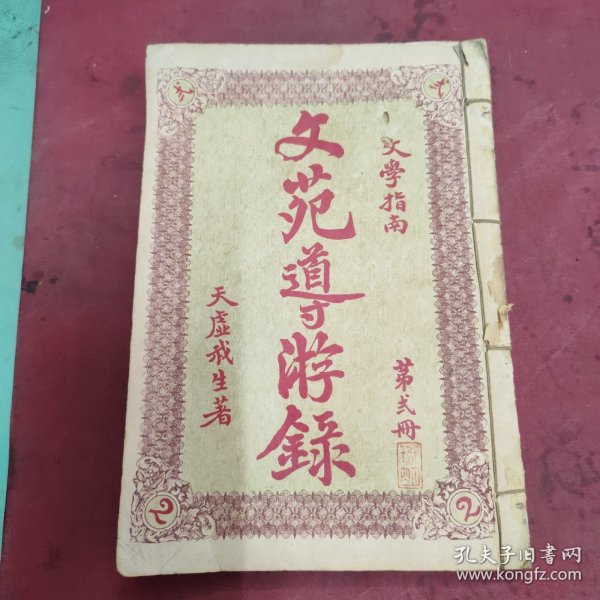 文學指南
第弍冊
文苑導游錄
天虛我生著
弍
2
2
孔夫子旧书网
www.kongfz.com